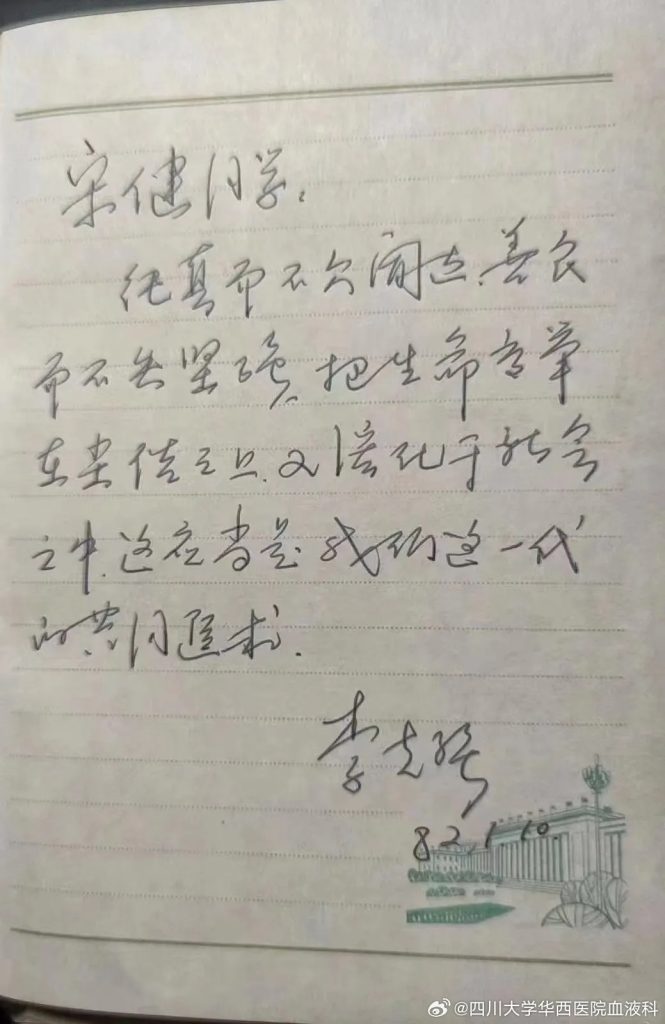 宋健同学:
纯真而不欠阔达、善良
而不失坚强,把生命高举
在尘俗之上,又溶化于社会
之中,这应当是我们这一代
的共同追求.
李克强
82 1 10
@四川大学华西医院血液科